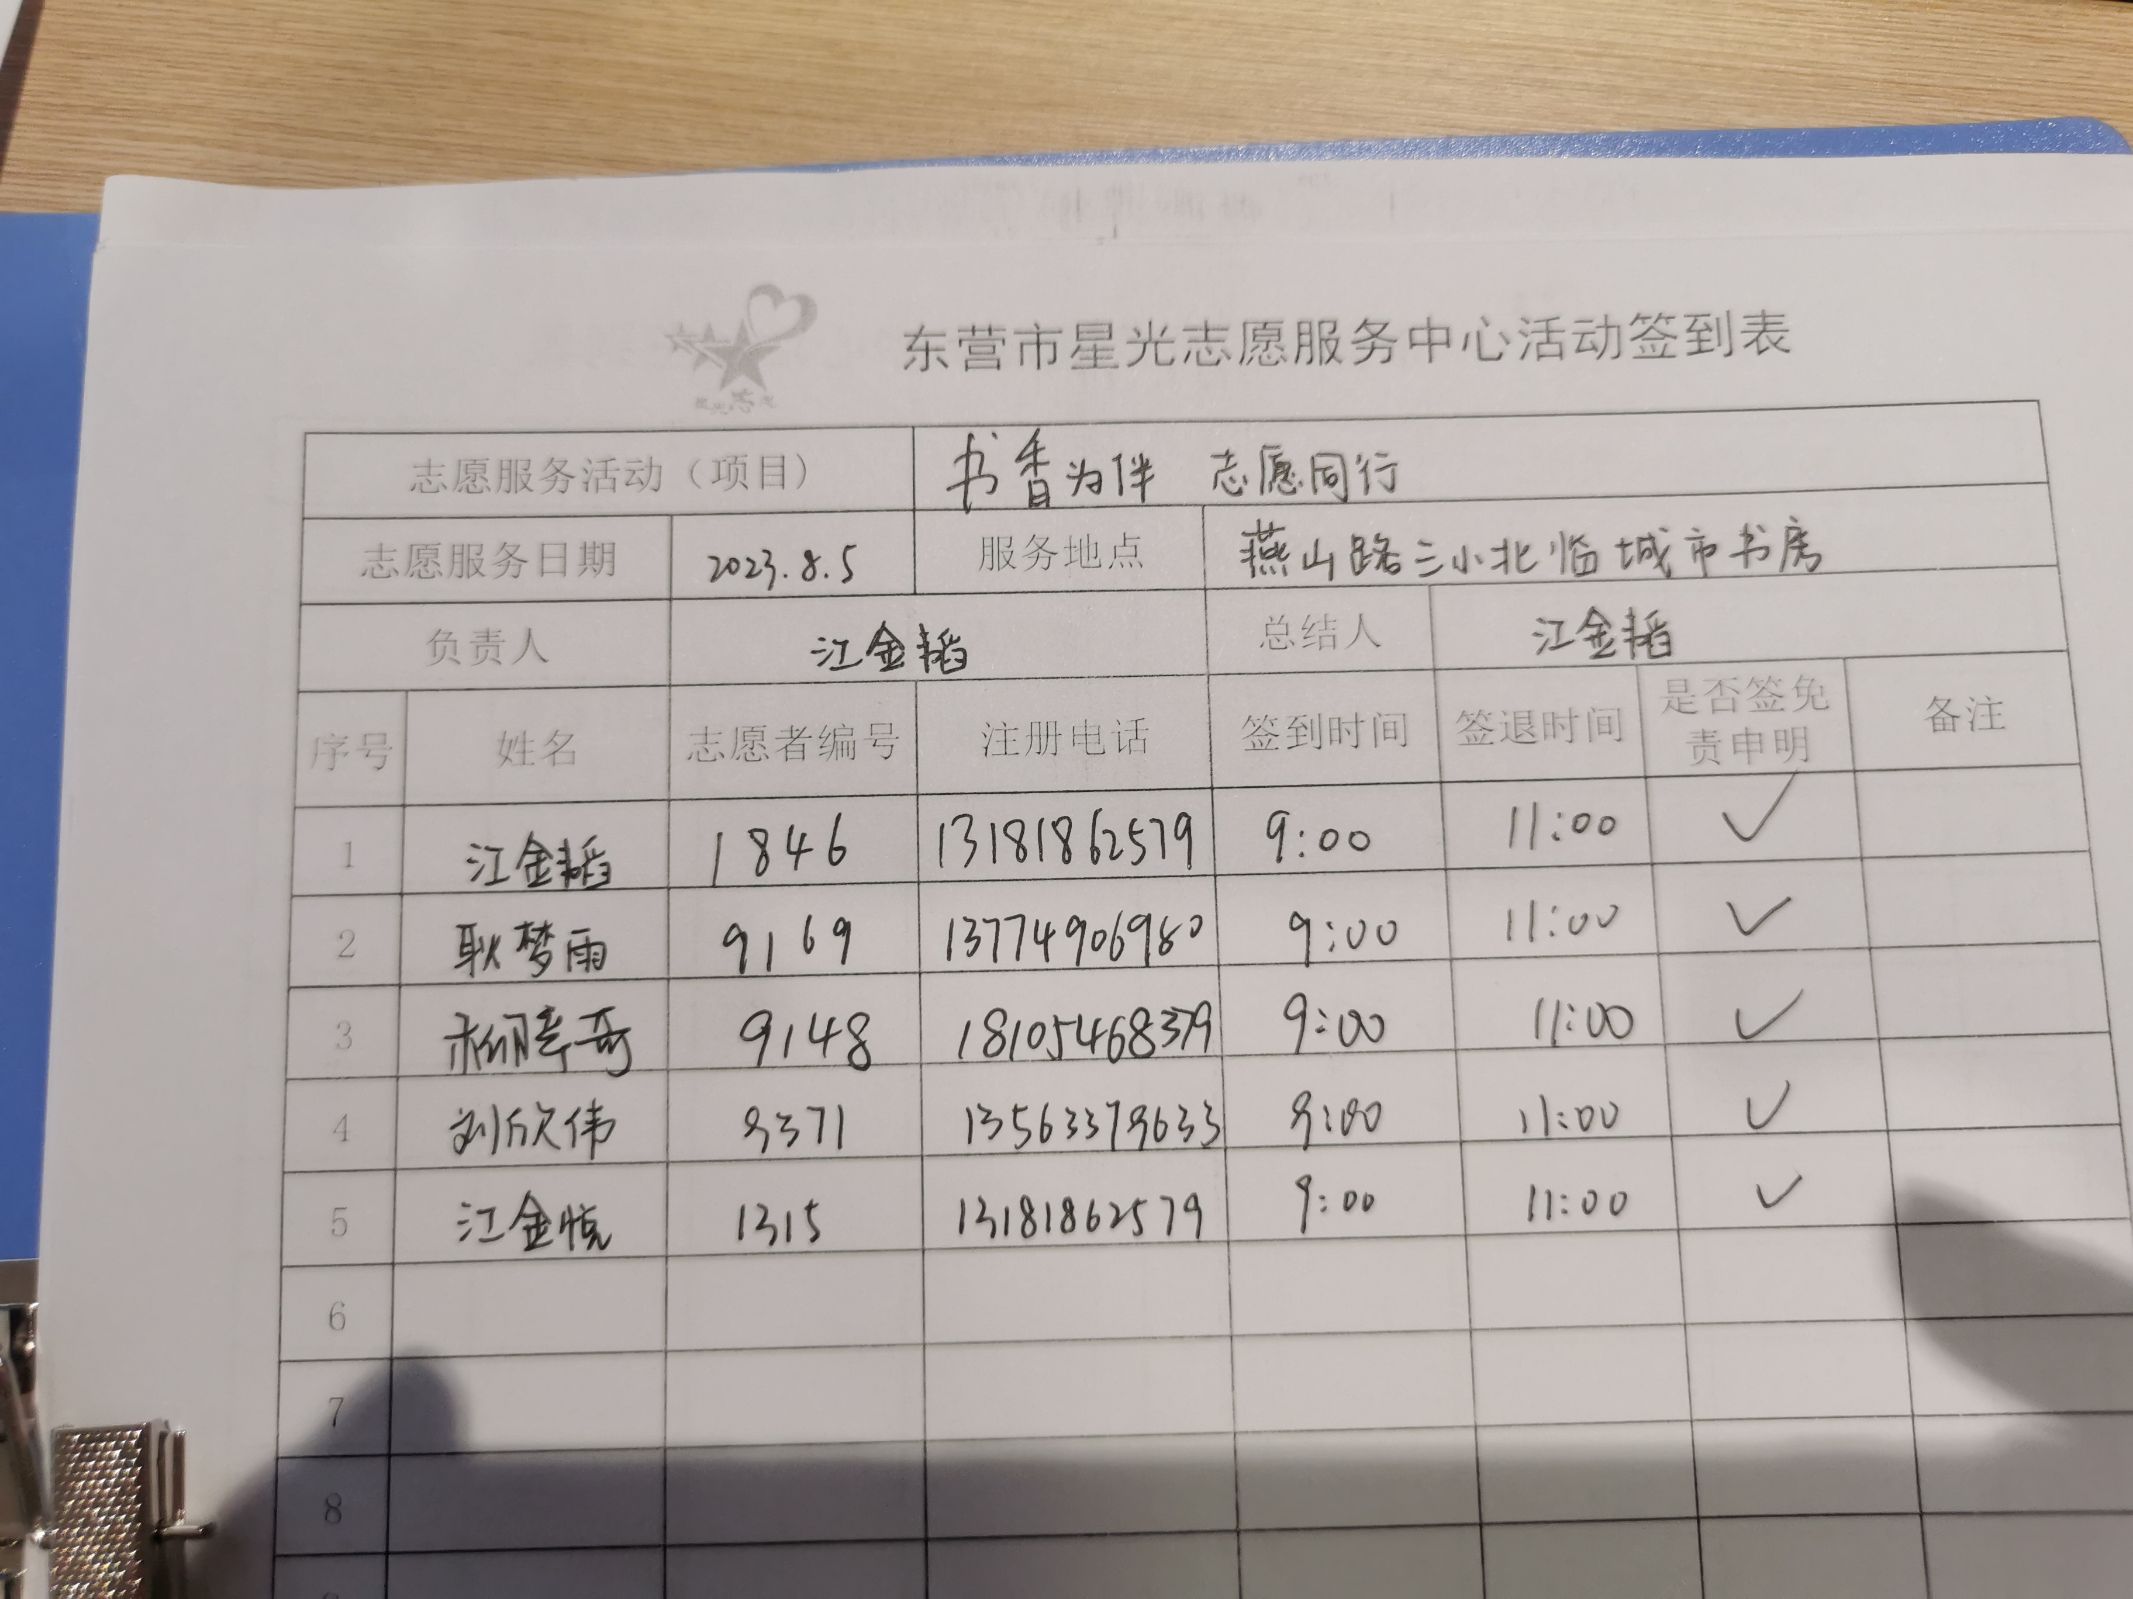 东营市星光志愿服务中心活动签到表
志愿服务活动（项目） 书香为伴 志愿同行
志愿服务日期 2023.8.5 服务地点 燕山路三小北临城市书房
负责人 江金韬 总结人 江金韬
序号 姓名 志愿者编号 注册电话 签到时间 签退时间 是否签免责申明 备注
1 江金韬 1846 13181862579 9:00 11:00 ✓
2 耿梦雨 9169 13774906980 9:00 11:00 ✓
3 9148 18105468379 9:00 11:00 ✓
4 刘欣伟 9371 13563379633 9:00 11:00 ✓
5 江金悦 1315 13181862579 9:00 11:00 ✓
6
7
8